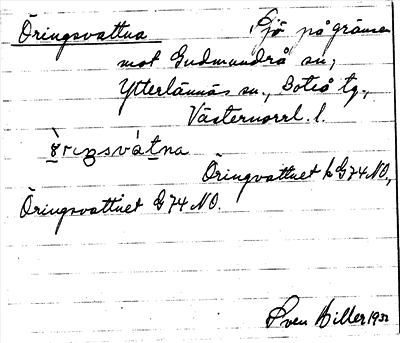 Öringsvattna Sjö på gränsen
mot Gudmundrå sn,
Ytterlännäs sn., Boteå tg.,
Västernorrl. l.
Öringvattnet k G74 NO,
Öringsvattnet G 74 NO.
Sven Hiller 1932